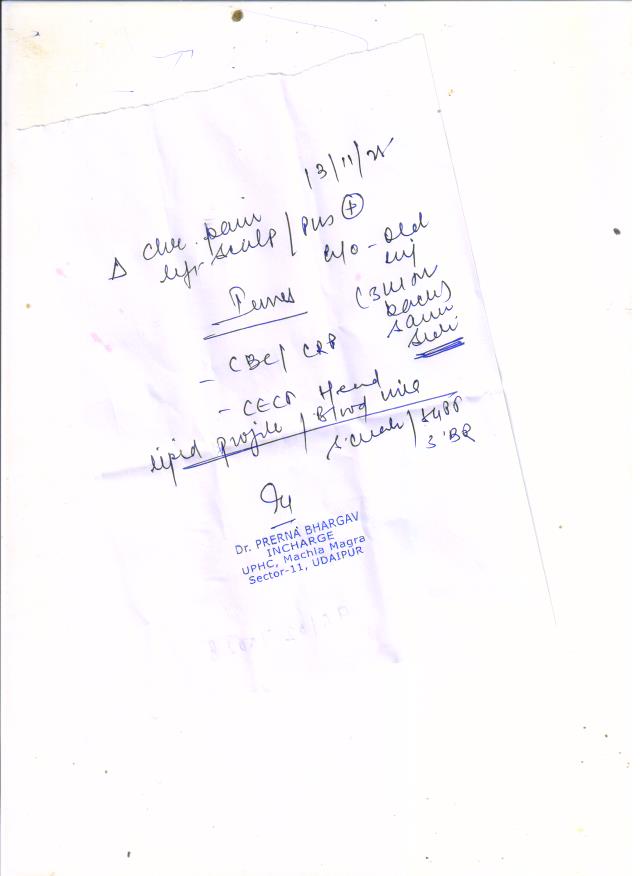 13/11/25
Δ Chr. pain / pus +
left scalp
h/o - old
inj
(3 mon
back)
same
side
- CBC / CRP
- CECT Head
lipid profile / Blood urea
S. creat /
Dr. PRERNA BHARGAV
INCHARGE
UPHC, Machla Magra
Sector-11, UDAIPUR